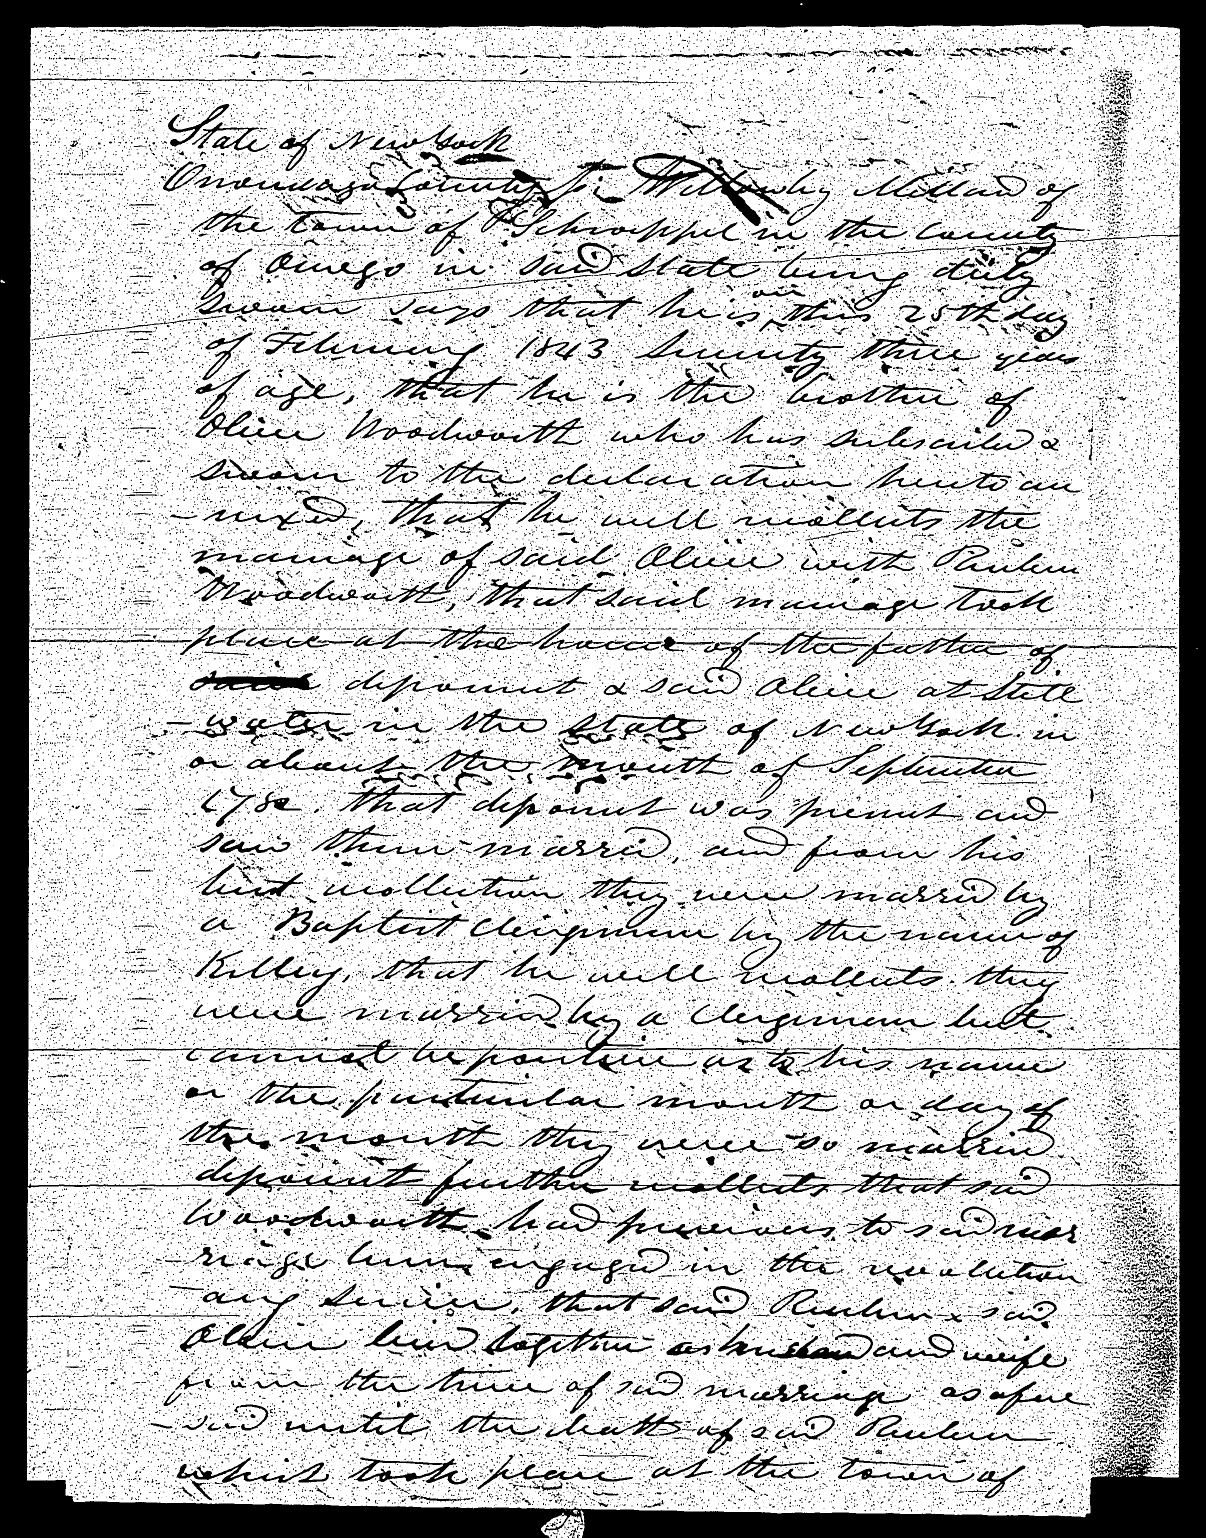 State of New York
Onondaga County Ss. Willoughby Millard of
the town of Schroeppel in the County
of Oswego in said State being duly
sworn says that he is on this 25th day
of February 1843 Seventy three years
of age, that he is the brother of
Olive Woodworth who has subscribed &
sworn to the declaration hereto an
-nexed, that he well recollects the
marriage of said Olive with Reuben
Woodworth, that said marriage took
place at the house of the father of
said deponent & said Olive at Still
-water in the State of New York in
or about the month of September
178 that deponent was present and
saw them married, and from his
best recollection they were married by
a Baptist Clergyman by the name of
Killey, that he well recollects they
were married by a Clergyman but
cannot be positive as to his name
or the particular month or day of
the month they were so married
deponent further recollects that said
Woodworth had previous to said mar
-riage been engaged in the revolution
-ary service, that said Reuben & said
Olive lived together as husband and wife
from the time of said marriage as afore
-said until the death of said Reuben
which took place at the town of